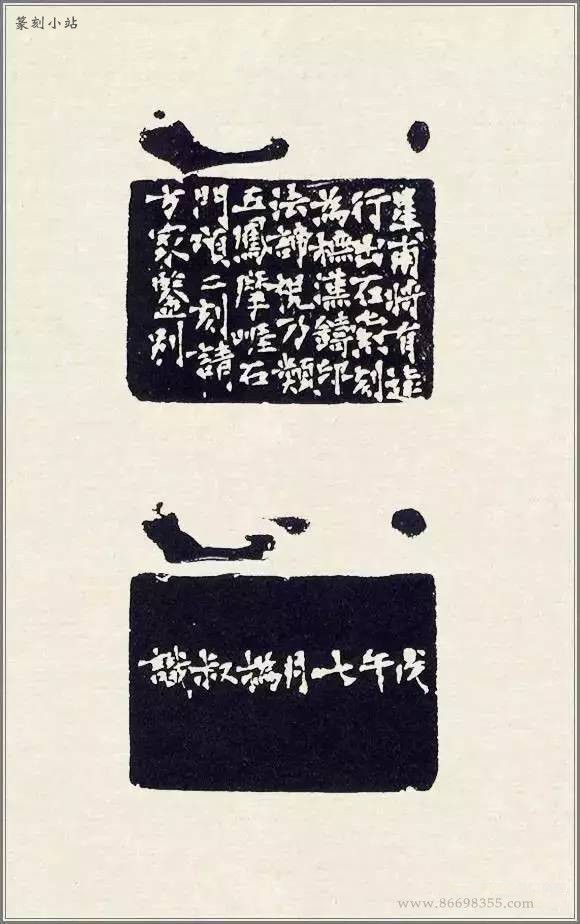 篆刻小站
星甫將有遠
行出石索刻
為橅漢鑄印
法諦視乃類
五鳳摩崖石
門頌二刻請
方家鑒別
戊午七月撝叔識
www.86698355.com